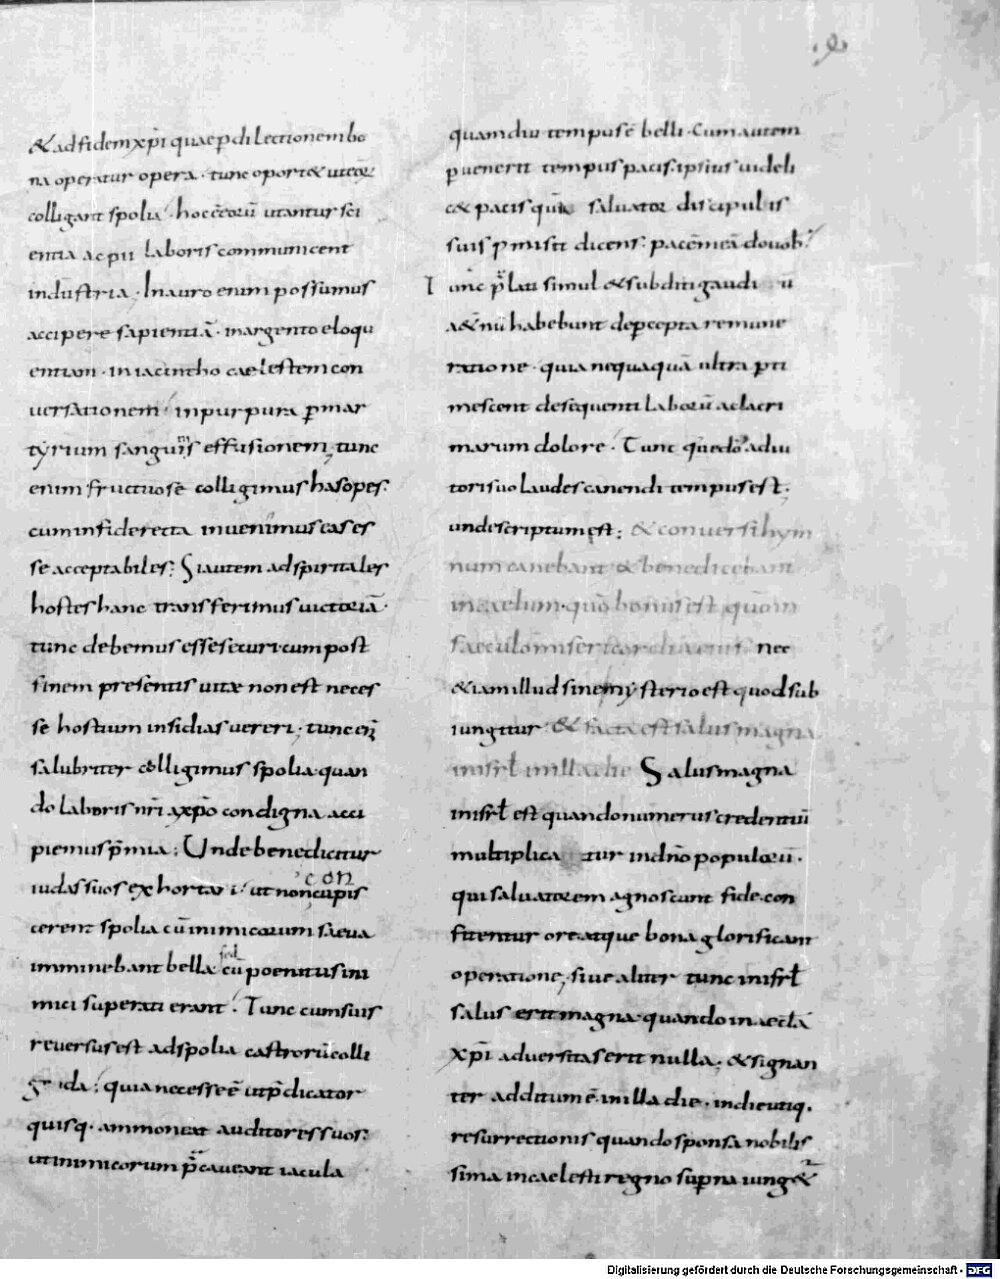 & ad fidem xp̄i quae p̄ dilectionem bo
na operatur opera · tunc oport& ut eoꝝ
colligant spolia · hoc ē eorū utantur sci
entia ac pii laboris communicent
industria · In auro enim possumus
accipere sapientiā · in argento eloqu
entiam · in iacintho caelestem con
uersationem · in purpura p̄ mar
tyrium sanguīs effusionem, tunc
enim fructuose colligimus has opes·
cum in fide recta inuenimus eas es
se acceptabiles; Si autem ad spiritales
hostes hanc transferimus uictoriā·
tunc debemus esse securi cum post
finem presentis uitae non est neces
se hostium insidias uereri · tunc eni̅
salubriter colligimus spolia quan
do laboris nr̄i a xp̄o condigna acci
piemus p̄mia; Unde benedicitur
iudas suos exhortari ut non concupis
cerent spolia cū inimicorum saeua
imminebant bella sed cū poenitus ini
mici superati erant · Tunc cum suis
reuersus est ad spolia castrorū colli
g ida; quia necesse ē ut p̄dicator
quisq· ammoneat auditores suos:
ut inimicorum p̄caueant iacula
quamdiu tempus ē belli · Cum autem
p̄uenerit tempus pacis · ipsius uideli
c& pacis quā saluator discipulis
suis p̄misit dicens: pacē meā do uob·
Tunc p̄lati simul & subditi gaudi ū
a&nū habebunt de p̄cepta remune
ratione · quia nequaquā ultra p̄ti
mescent de sequenti laborū ac lacri
marum dolore · Tunc qued̄o adiu
tori suo laudes canendi tempus est;
unde scriptum est; & conuersi hym
num canebant & benedicebant
in caelum · quō bonus est quōm
saeculōm misericordia eius · nec
& iam illud sine mysterio est quod sub
iungitur & facta est salus magna
in isrl̄ in illa die Salus magna
in isrl̄ est quando numerus credentiū
multiplicatur in dn̄o populorū·
qui saluatorem agnoscunt fide con
fitentur ore atque bona glorificant
operatione, siue aliter tunc in isrl̄
salus erit magna quando in aeclā
xp̄i aduersitas erit nulla; & signan
ter additum ē in illa die · in die utiq·
resurrectionis quando sponsa nobilis
sima in caelesti regno sup̄na iung&